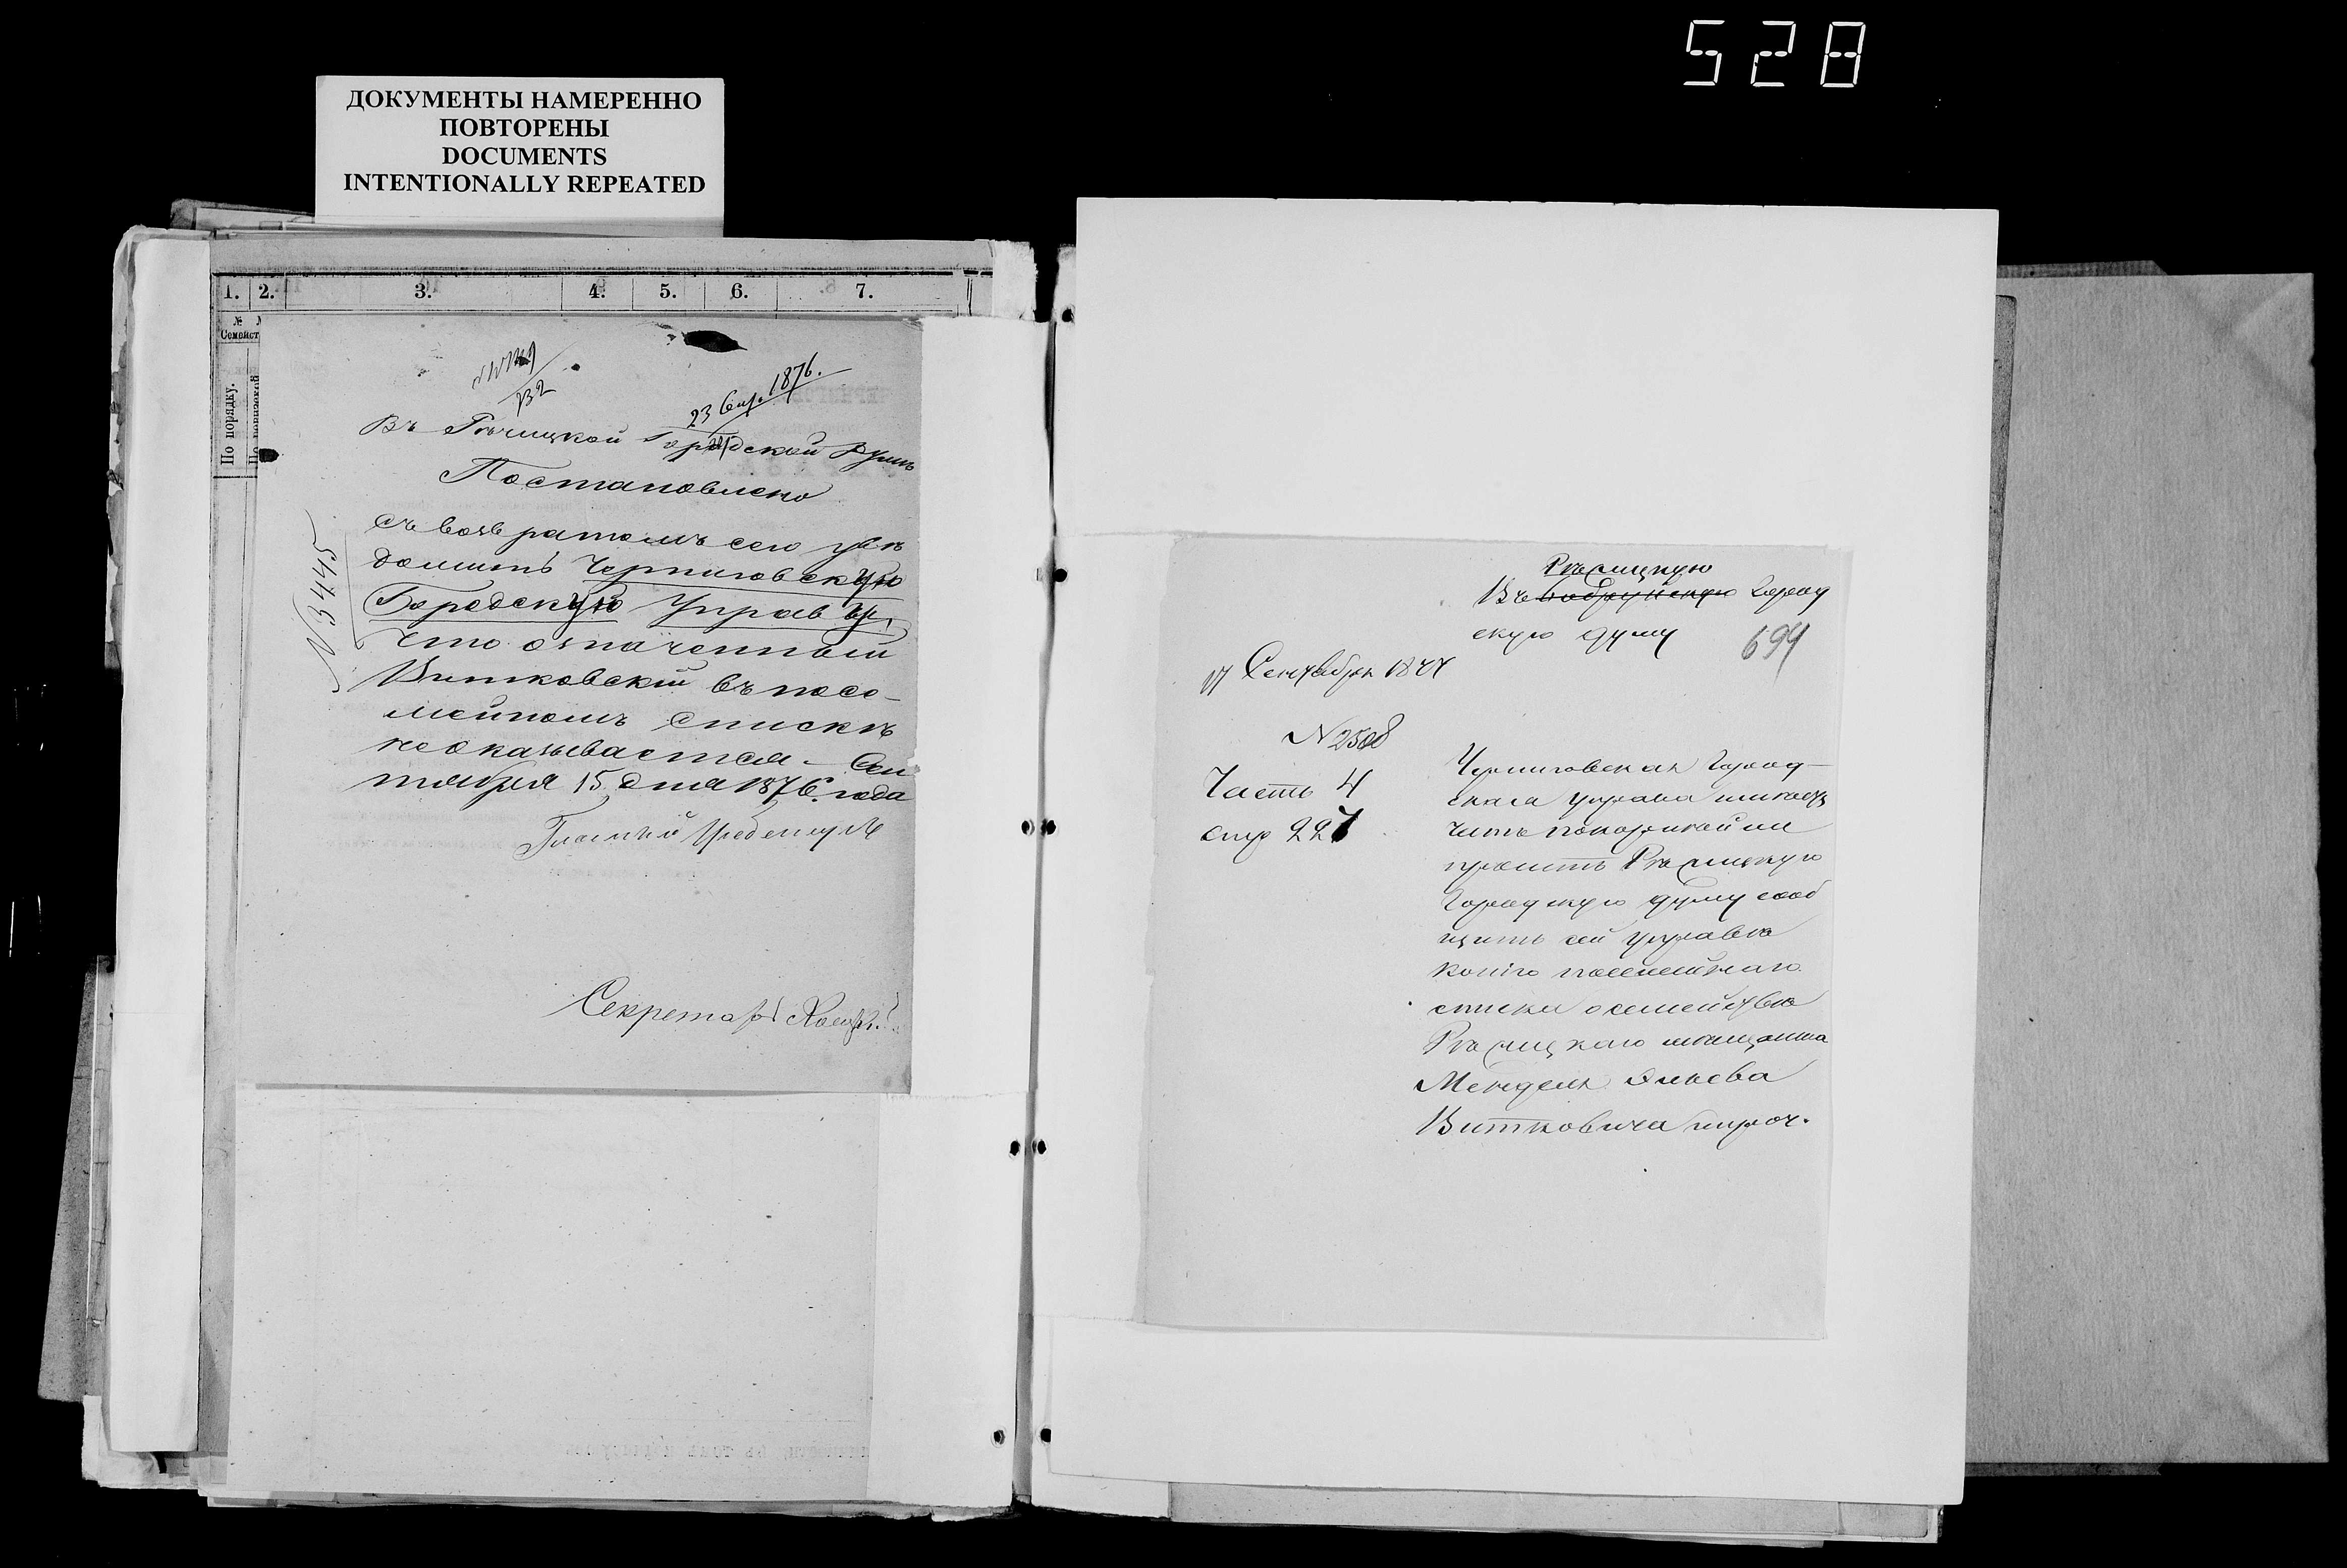 528
ДОКУМЕНТЫ НАМЕРЕННО
ПОВТОРЕНЫ
DOCUMENTS
INTENTIONALLY REPEATED
1. 2. 3. 4. 5. 6. 7.
№
Семейст
По порядку.
23 Сен. 1876.
Въ Речицкой Городской Думѣ
Постановлено
съ возвратомъ сего увѣ
домить Черниговскую
Городскую Управу,
что означенный
Витковскій въ посе-
мейномъ спискѣ
не оказывается. Сен
тября 15 дня 1876 года
N 3445
Гласный
Секретарь
Рѣчицкую
Въ Бобруйскую Город
скую Думу
694
17 Сентября 1877
N 2508
Часть 4
стр 227
Черниговская Город-
ская Управа имѣетъ
честь покорнейше
просить Рѣчицкую
Городскую Думу сооб
щить сей Управѣ
копію посемейнаго
списка о семействѣ
Рѣчицкаго мѣщанина
Менделя Эльева
Витковича